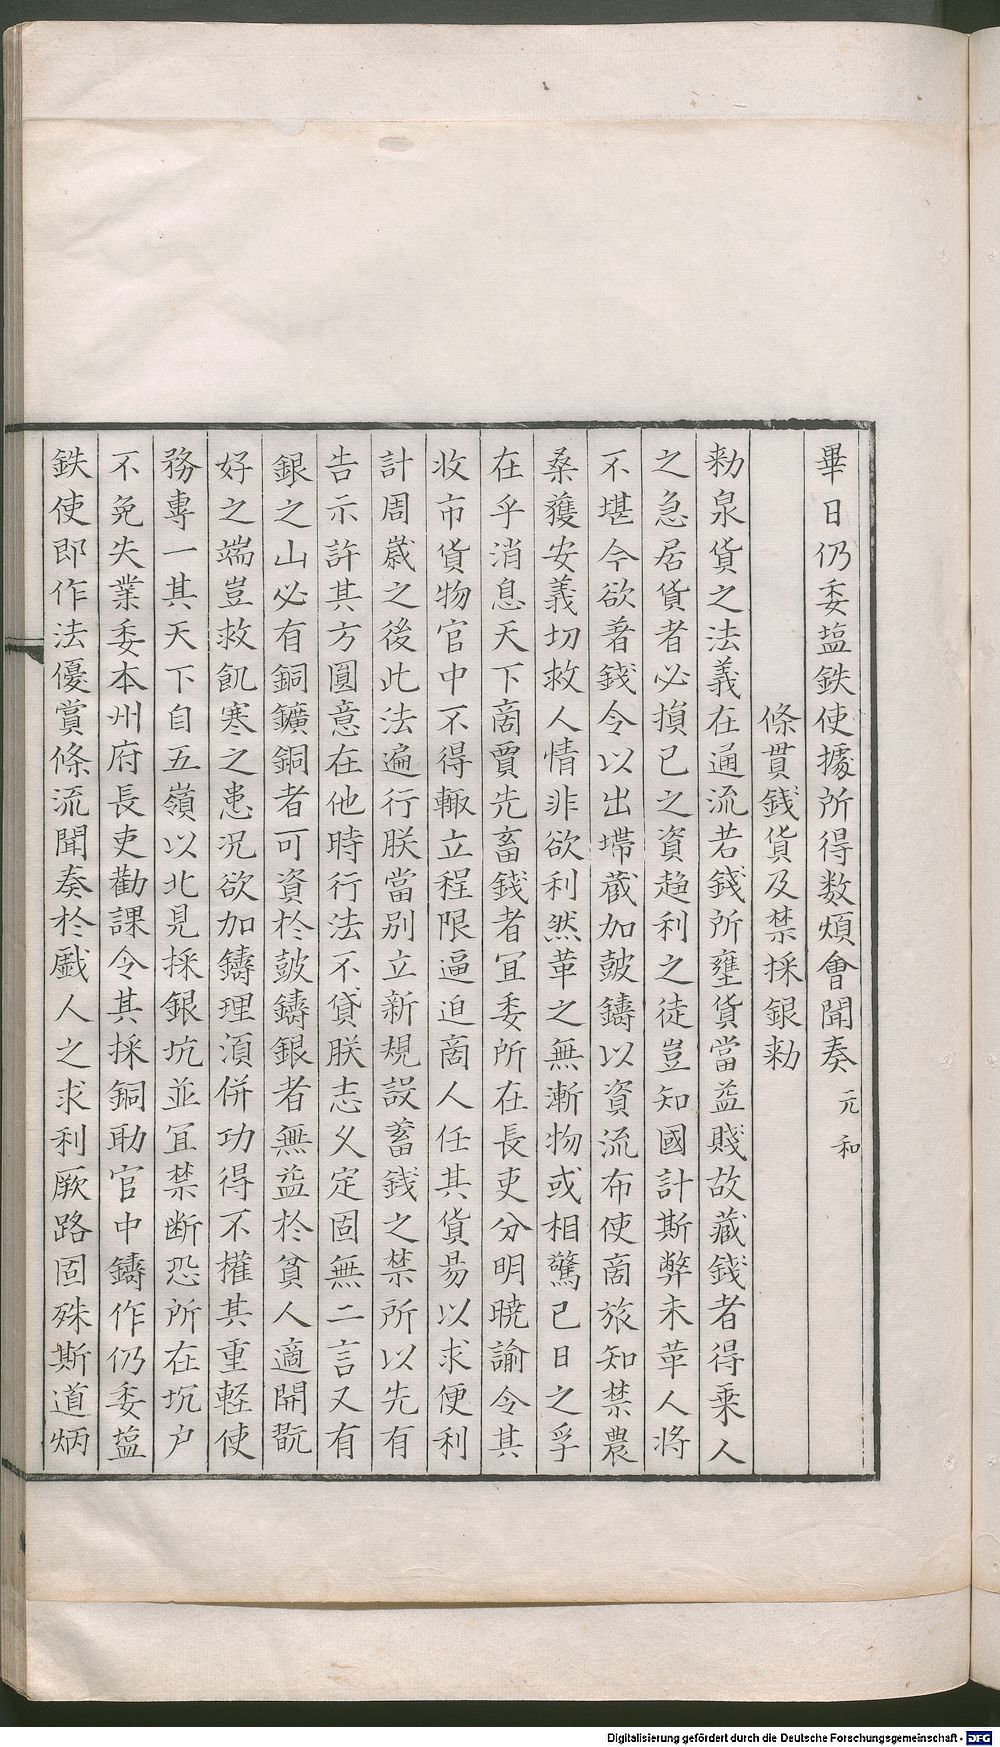 畢日仍委塩鉄使據所得数煩會聞奏元和
條貫錢貨及禁採銀勑
勑泉貨之法義在通流若錢所壅貨當益賤故藏錢者得乗人
之急居貨者必損己之資趍利之徒豈知國計斯弊未革人将
不堪今欲著錢令以出墆蔵加皷鑄以資流布使啇旅知禁農
桒獲安義切救人情非欲利然革之無漸物或相驚已日之孚
在乎消息天下啇賈先畜錢者冝委所在長吏分明暁諭令其
收市貨物官中不得輙立程限逼迫啇人任其貨易以求便利
計周嵗之後此法遍行朕當别立新規設蓄錢之禁所以先有
告示許其方圓意在他時行法不貸朕志乆定固無二言又有
銀之山必有銅鑛銅者可資於皷鑄銀者無益於貧人適開翫
好之端豈救飢寒之患况欲加鑄理湏併功得不權其重軽使
務專一其天下自五嶺以北見採銀坑並冝禁断恐所在坑户
不免失業委本州府長吏勸課令其採銅助官中鑄作仍委塩
鉄使即作法優賞條流聞奏於戱人之求利厥路固殊斯道炳
Digitalisierung gefördert durch die Deutsche Forschungsgemeinschaft - DFG